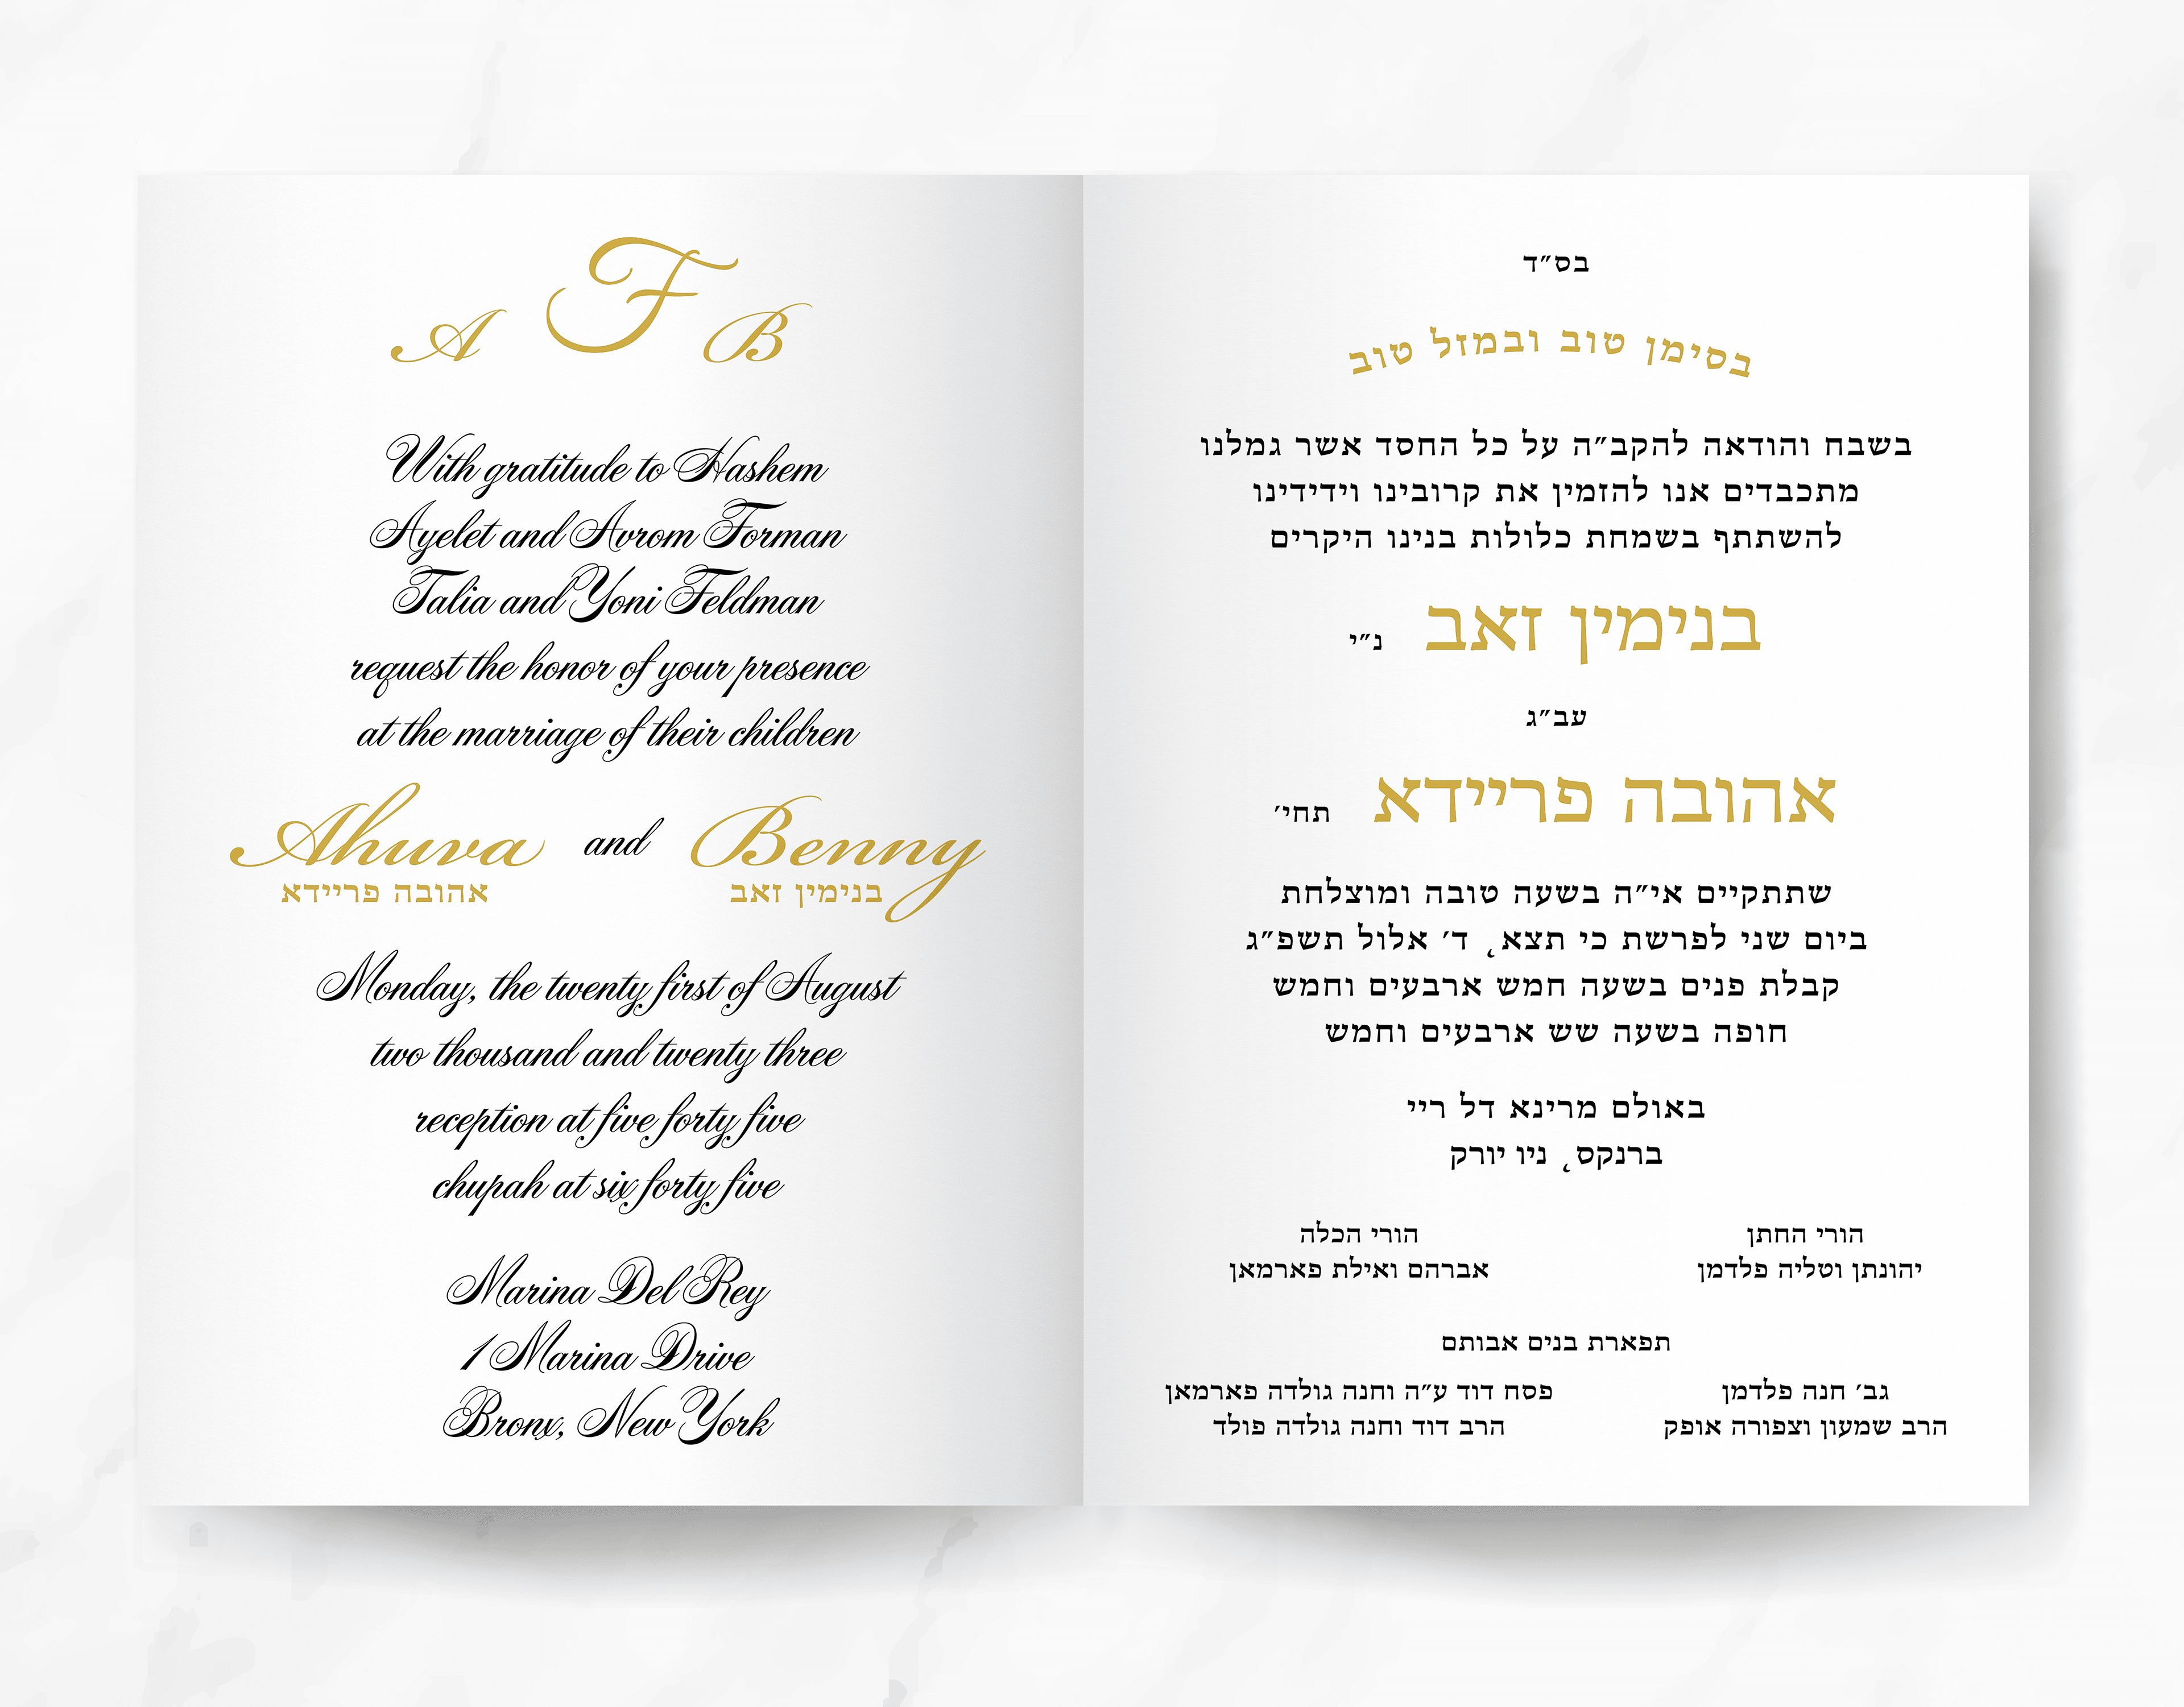 A F B
With gratitude to Hashem
Ayelet and Avrom Forman
Talia and Yoni Feldman
request the honor of your presence
at the marriage of their children
Ahuva and Benny
אהובה פריידא בנימין זאב
Monday, the twenty first of August
two thousand and twenty three
reception at five forty five
chupah at six forty five
Marina Del Rey
1 Marina Drive
Bronx, New York
בס״ד
בסימן טוב ובמזל טוב
בשבח והודאה להקב״ה על כל החסד אשר גמלנו
מתכבדים אנו להזמין את קרובינו וידידינו
להשתתף בשמחת כלולות בנינו היקרים
בנימין זאב נ״י
עב״ג
אהובה פריידא תחי׳
שתתקיים אי״ה בשעה טובה ומוצלחת
ביום שני לפרשת כי תצא, ד׳ אלול תשפ״ג
קבלת פנים בשעה חמש ארבעים וחמש
חופה בשעה שש ארבעים וחמש
באולם מרינא דל ריי
ברנקס, ניו יורק
הורי החתן הורי הכלה
יהונתן וטליה פלדמן אברהם ואילת פארמאן
תפארת בנים אבותם
גב׳ חנה פלדמן פסח דוד ע״ה וחנה גולדה פארמאן
הרב שמעון וצפורה אופק הרב דוד וחנה גולדה פולד